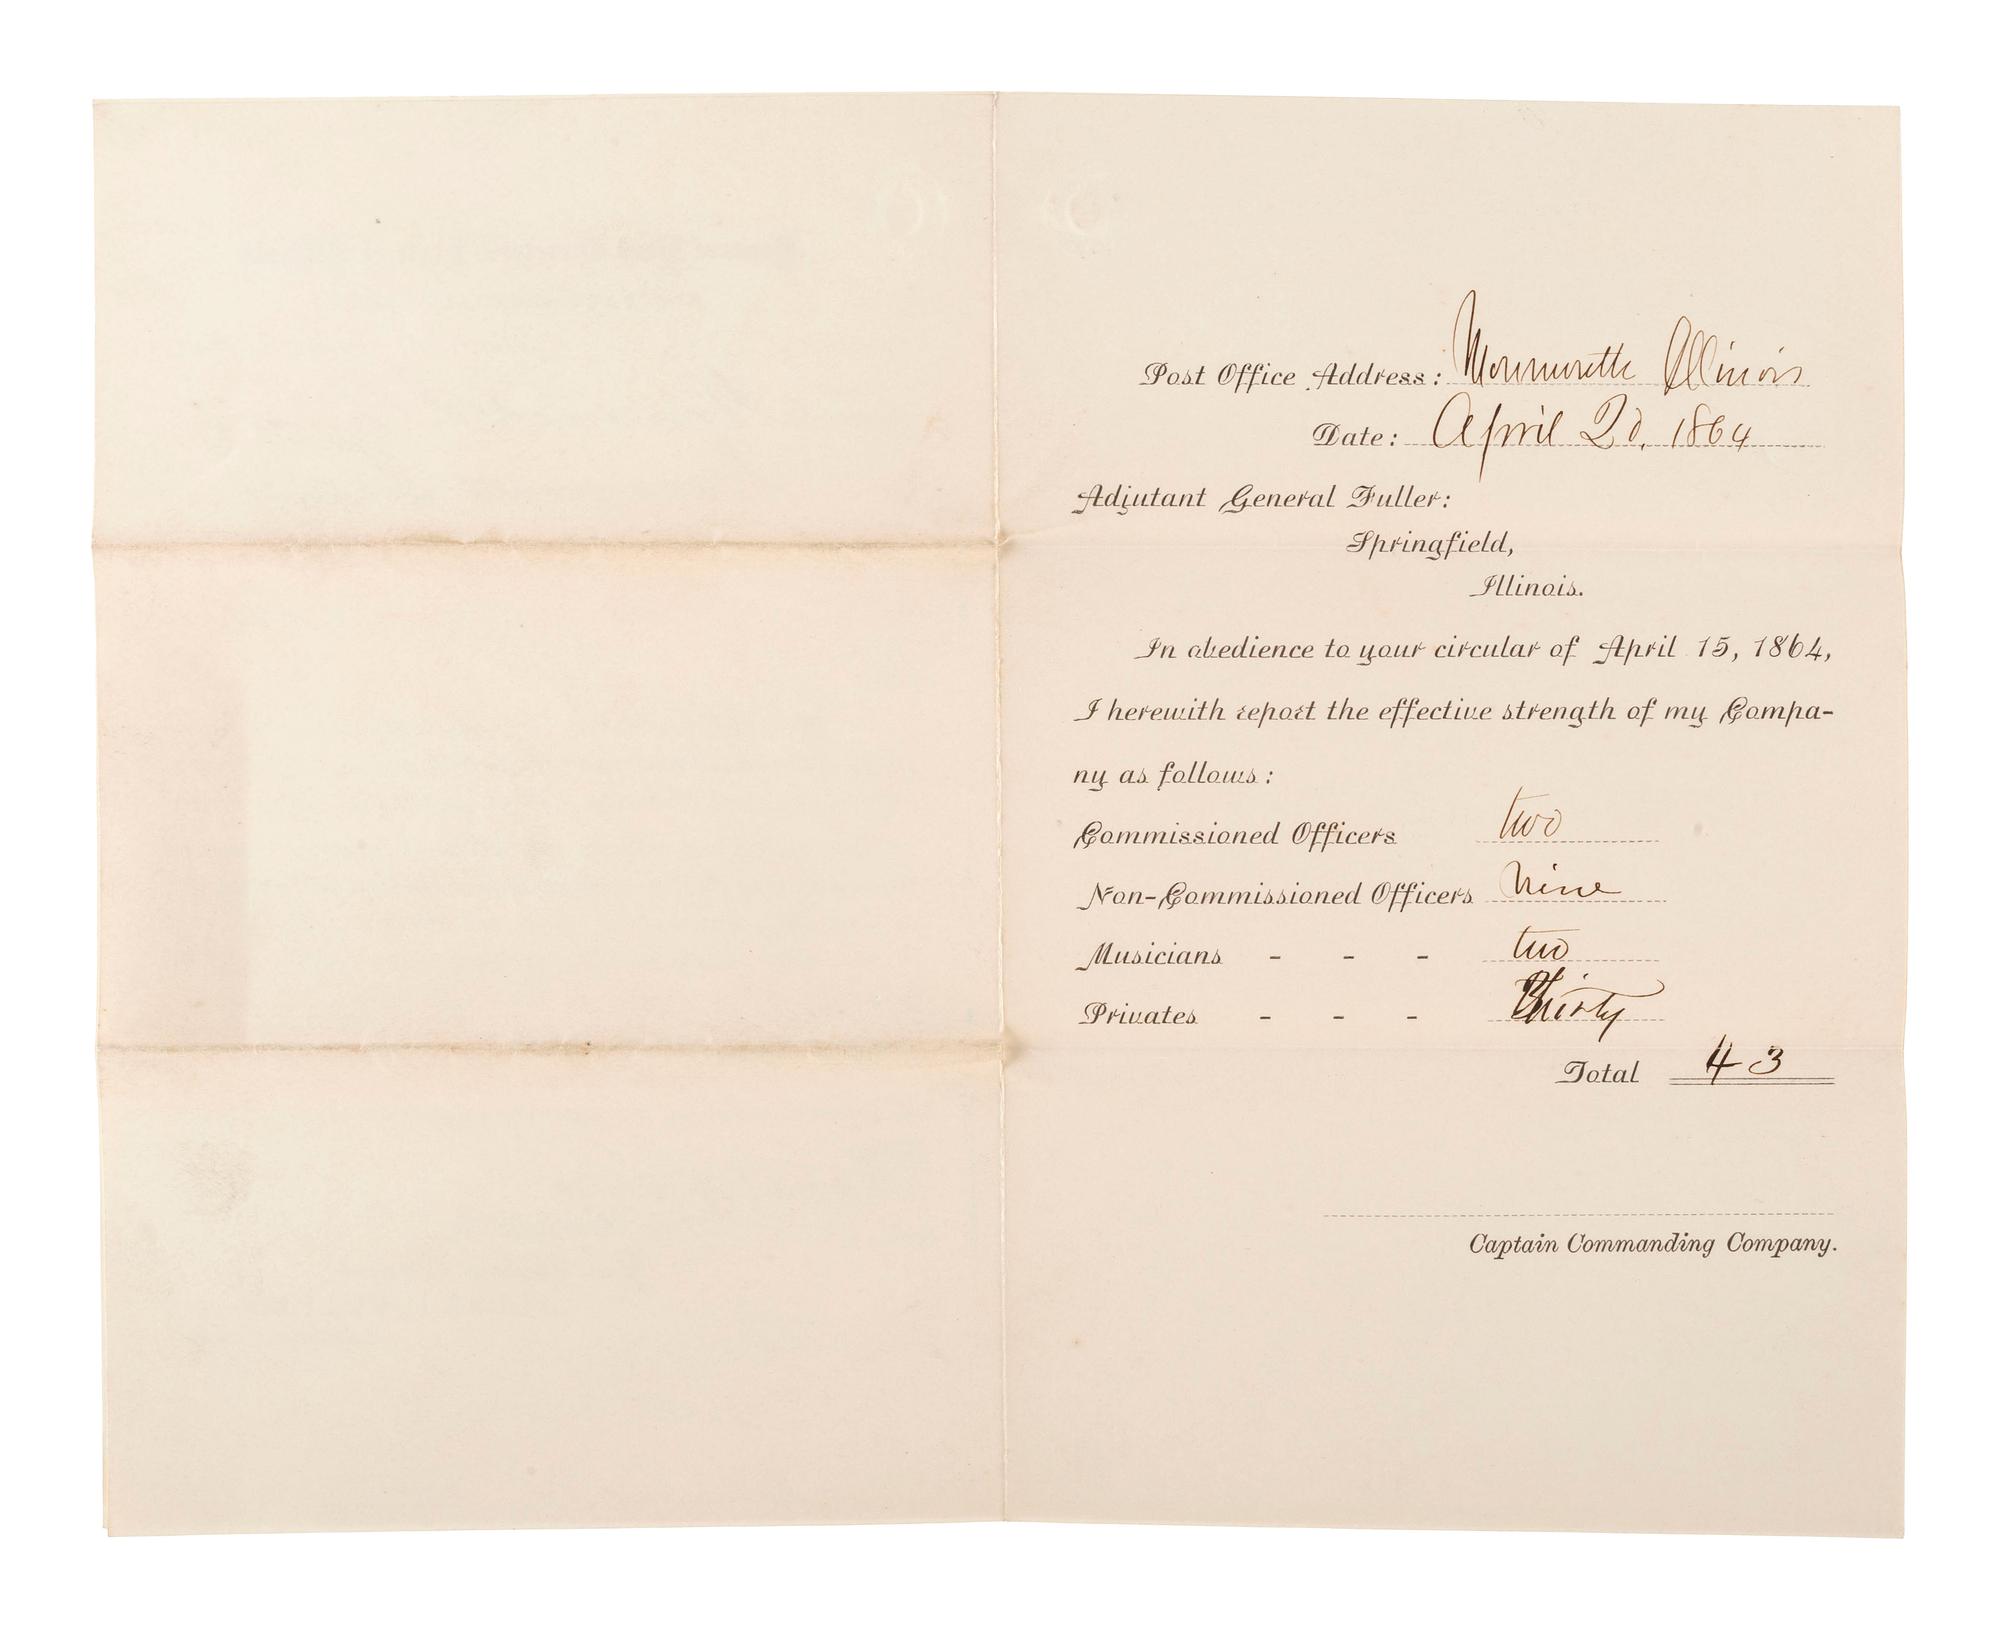 Post Office Address: Monmouth Illinois
Date: April 20, 1864
Adjutant General Fuller:
Springfield,
Illinois.
In obedience to your circular of April 15, 1864,
I herewith report the effective strength of my Compa-
ny as follows:
Commissioned Officers two
Non-Commissioned Officers Nine
Musicians - - - two
Privates - - - Thirty
Total 43
Captain Commanding Company.